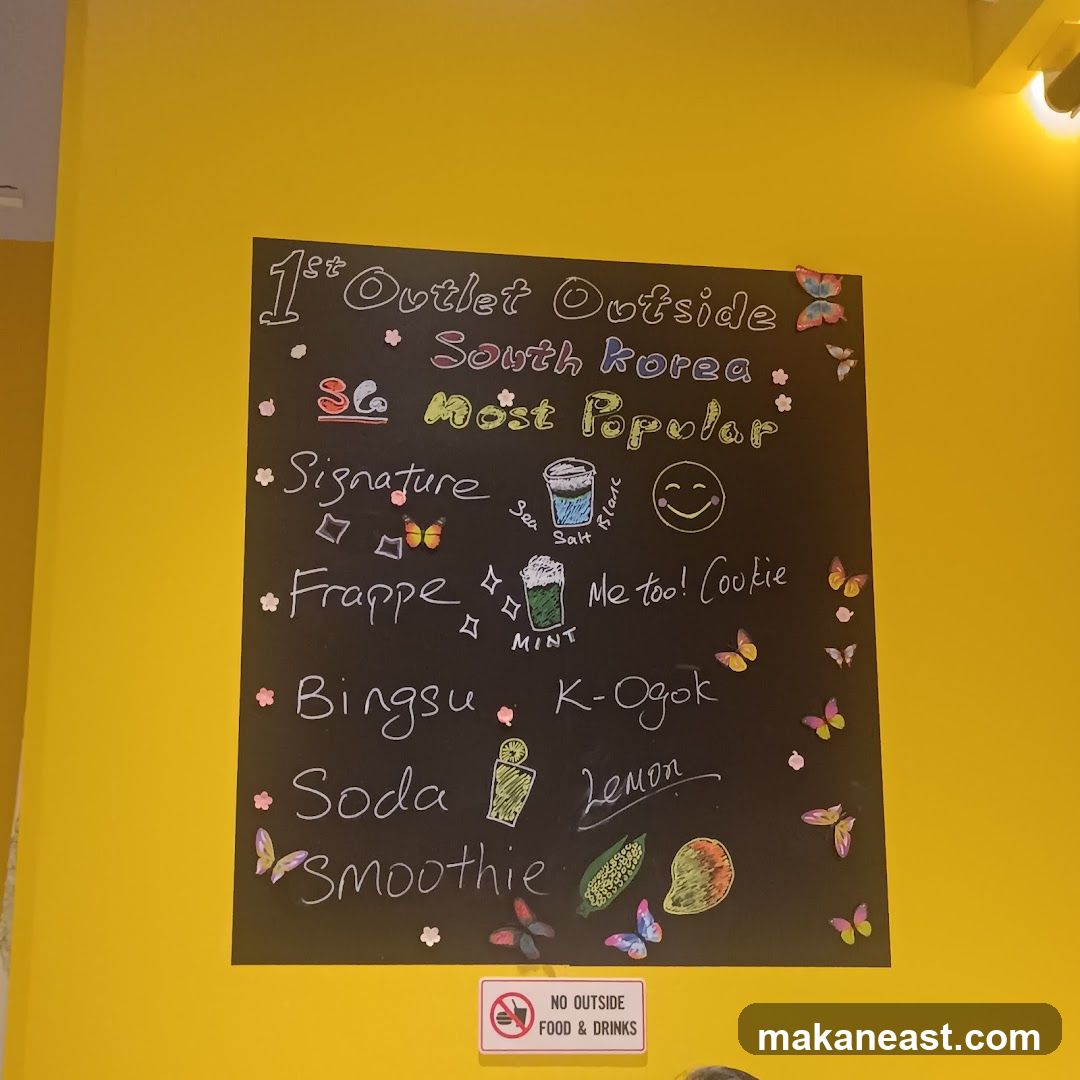 1st Outlet Outside
South Korea
SG Most Popular
Signature
Sea Salt Blanc
Frappe
MINT
Me too! Cookie
Bingsu K-Ogok
Soda Lemon
Smoothie
NO OUTSIDE
FOOD & DRINKS
makaneast.com